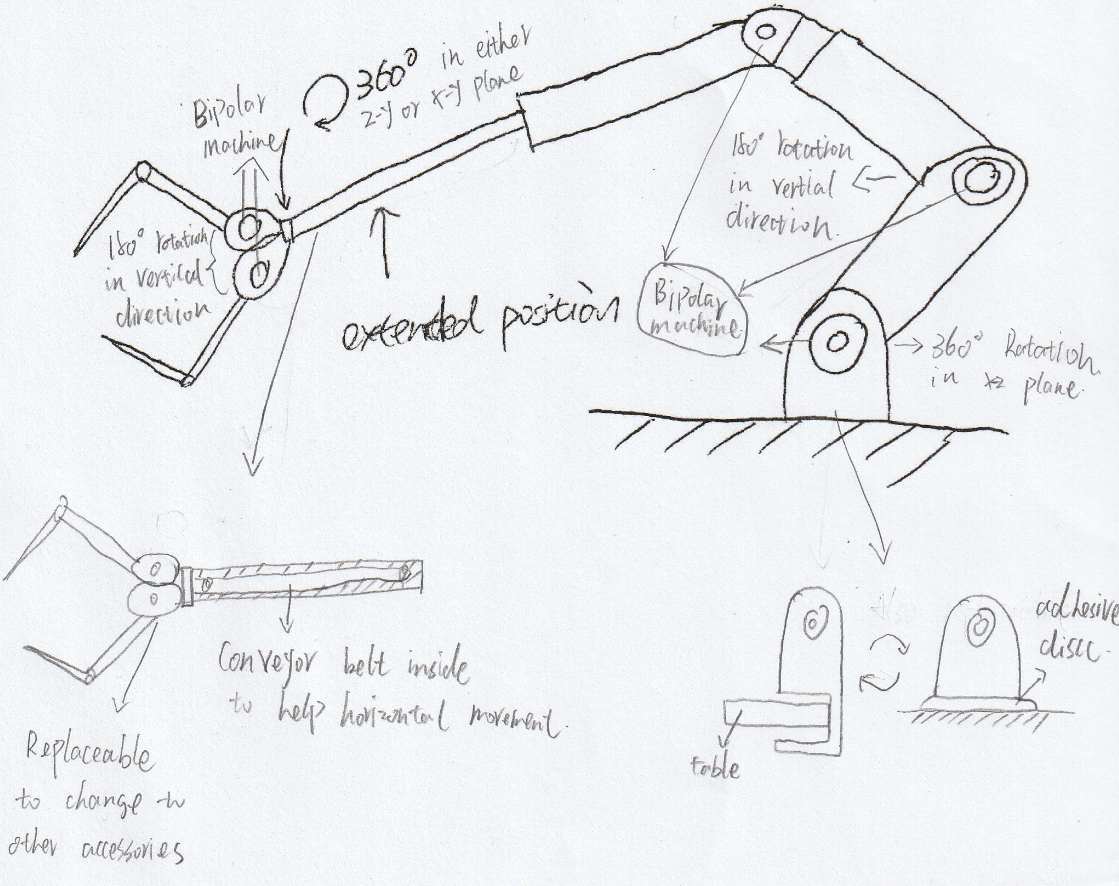 360° in either
z-y or x-y plane
Bipolar
machine
180° rotation
in vertical
direction
extended position
180° rotation
in vertial
direction.
Bipolar
machine
360° Rotation
in xz plane.
Conveyor belt inside
to help horizontal movement.
Replaceable
to change to
other accessories
adhesive
discc.
table